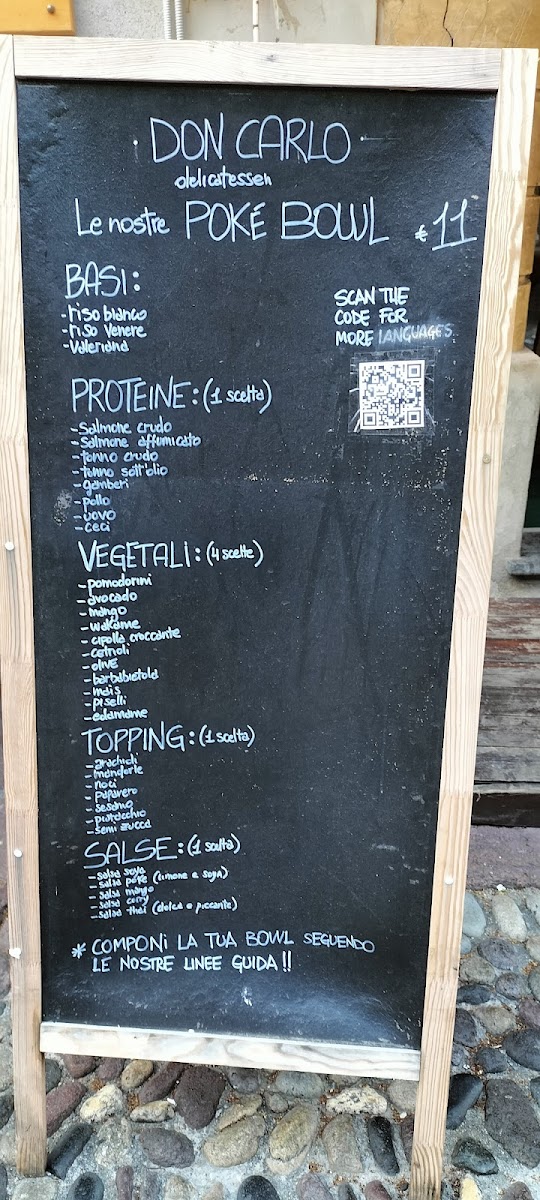 DON CARLO
delicatessen
Le nostre POKÉ BOWL € 11
BASI:
-riso bianco
-riso Venere
-Valeriana
SCAN THE
CODE FOR
MORE LANGUAGES
PROTEINE: (1 scelta)
-Salmone crudo
-Salmone affumicato
-tonno crudo
-tonno sott'olio
-gamberi
-pollo
-uovo
-ceci
VEGETALI: (4 scelte)
-pomodorini
-avocado
-mango
-wakame
-cipolla croccante
-cetrioli
-olive
-barbabietola
-mais
-piselli
-edamame
TOPPING: (1 scelta)
-arachidi
-mandorle
-noci
-papavero
-sesamo
-pistacchio
-semi zucca
SALSE: (1 scelta)
-salsa soya
-salsa pokè (limone e soya)
-salsa mango
-salsa curry
-salsa thai (dolce e piccante)
* COMPONI LA TUA BOWL SEGUENDO
LE NOSTRE LINEE GUIDA!!